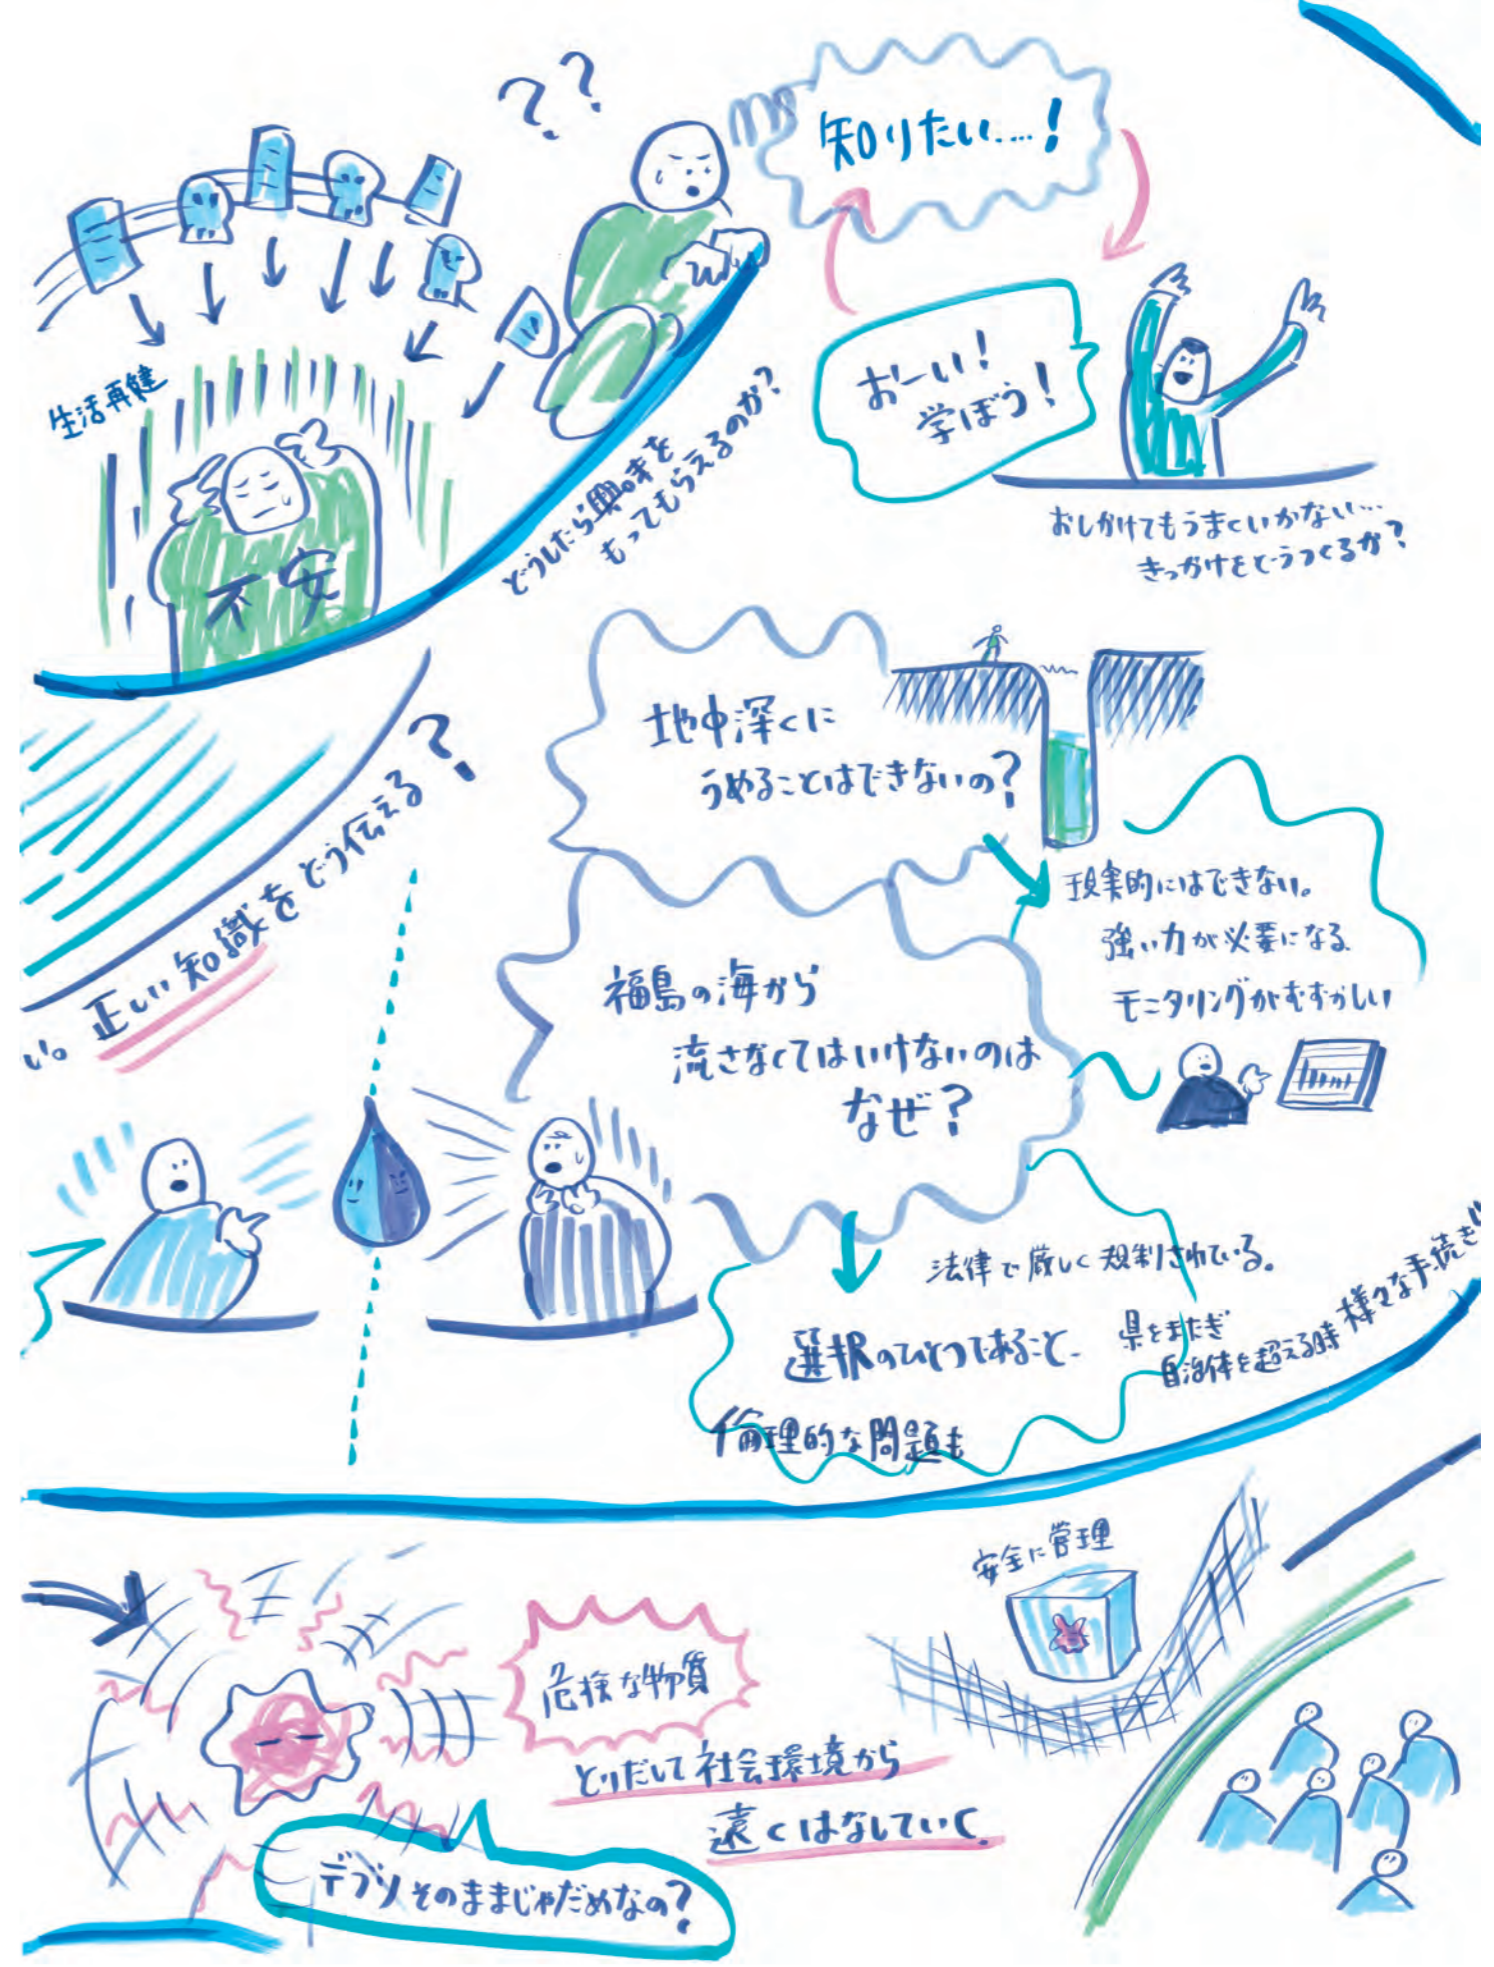 ??
知りたい....!
おーい!
学ぼう!
生活再建
不安
どうしたら興味を
もってもらえるのか?
おしかけてもうまくいかない...
きっかけをどうつくるか?
地中深くに
うめることはできないの?
現実的にはできない。
強い力が必要になる
モニタリングがむずかしい
い。正しい知識をどう伝える?
福島の海から
流さなくてはいけないのは
なぜ?
法律で厳しく規制されている。
選択のひとつであること
県をまたぎ
自治体を超える時様々な手続き
倫理的な問題も
安全に管理
危険な物質
とりだして社会環境から
遠くはなしていく
デブリそのままじゃだめなの?